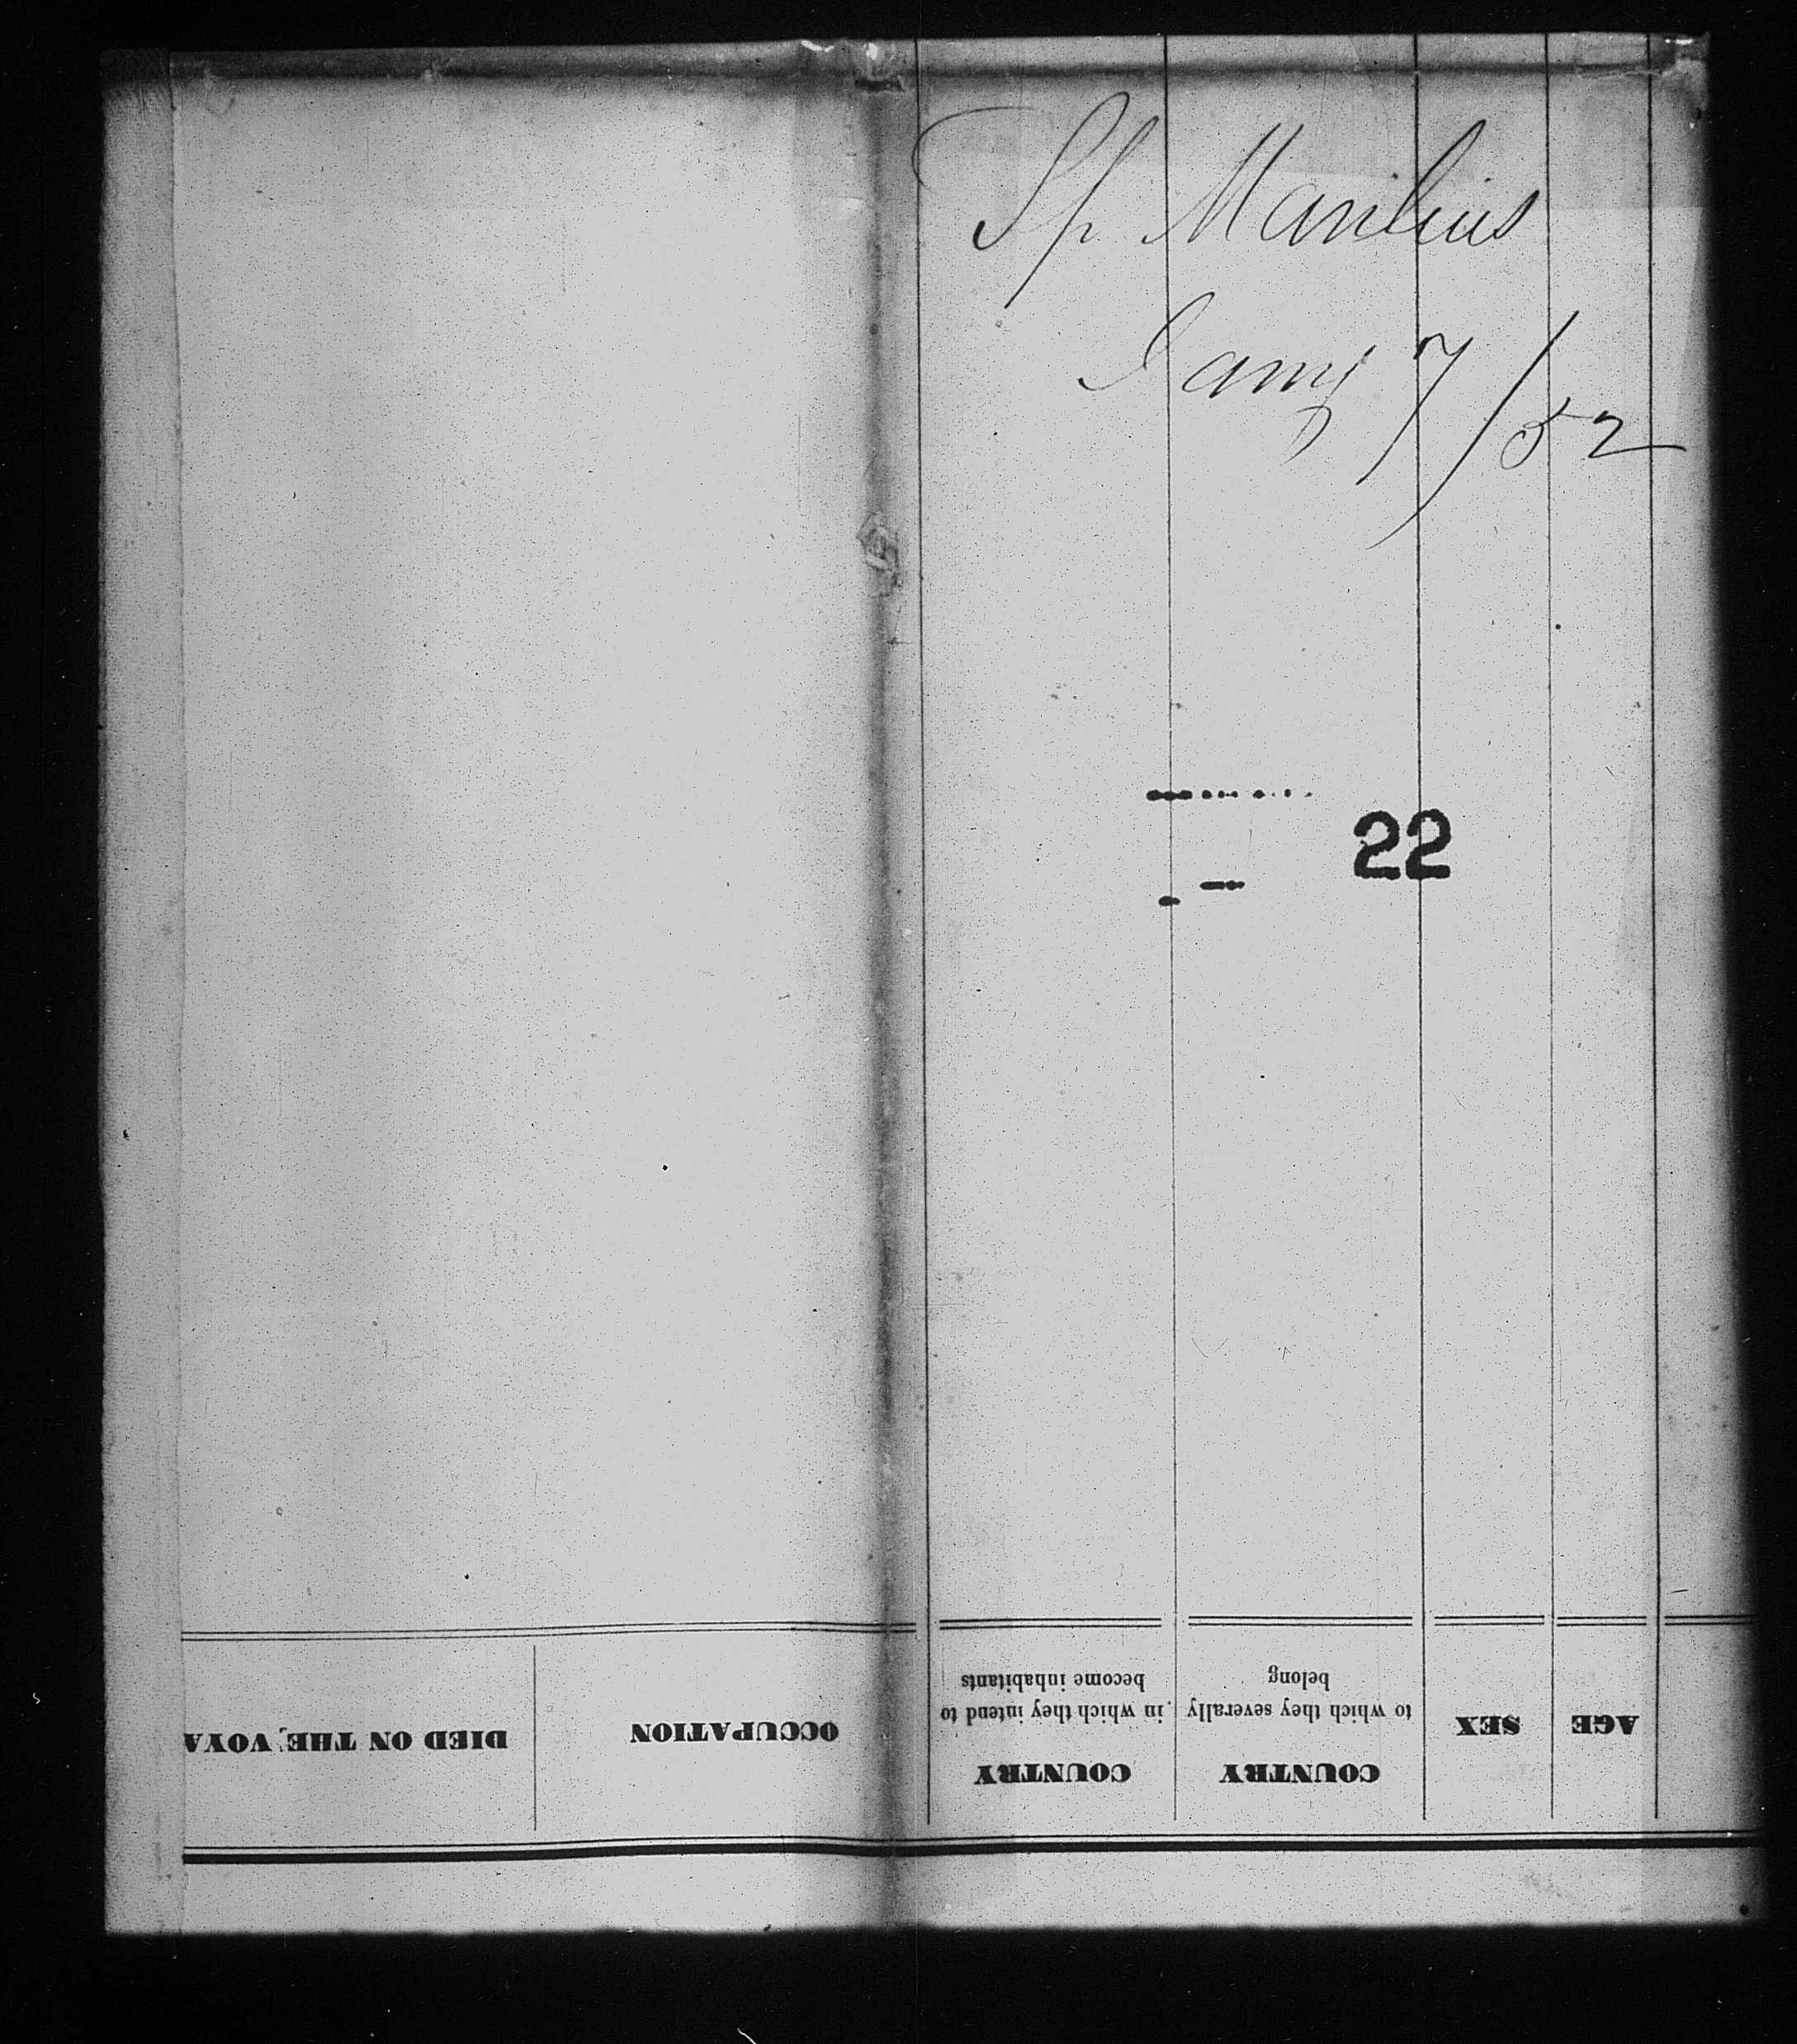 Sh Manlius
Jany 7/52
22
AGE
SEX
COUNTRY
to which they severally
belong
COUNTRY
in which they intend to
become inhabitants
OCCUPATION
DIED ON THE VOYA